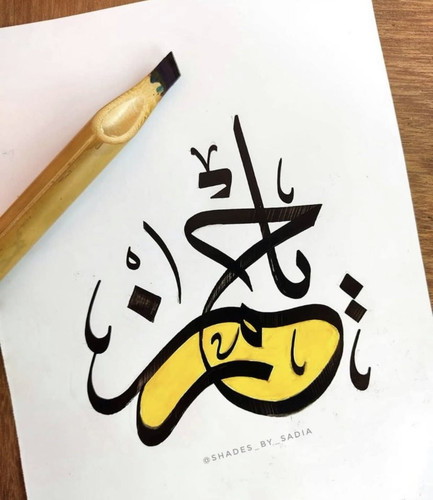 يا رحمن
@SHADES_BY_SADIA